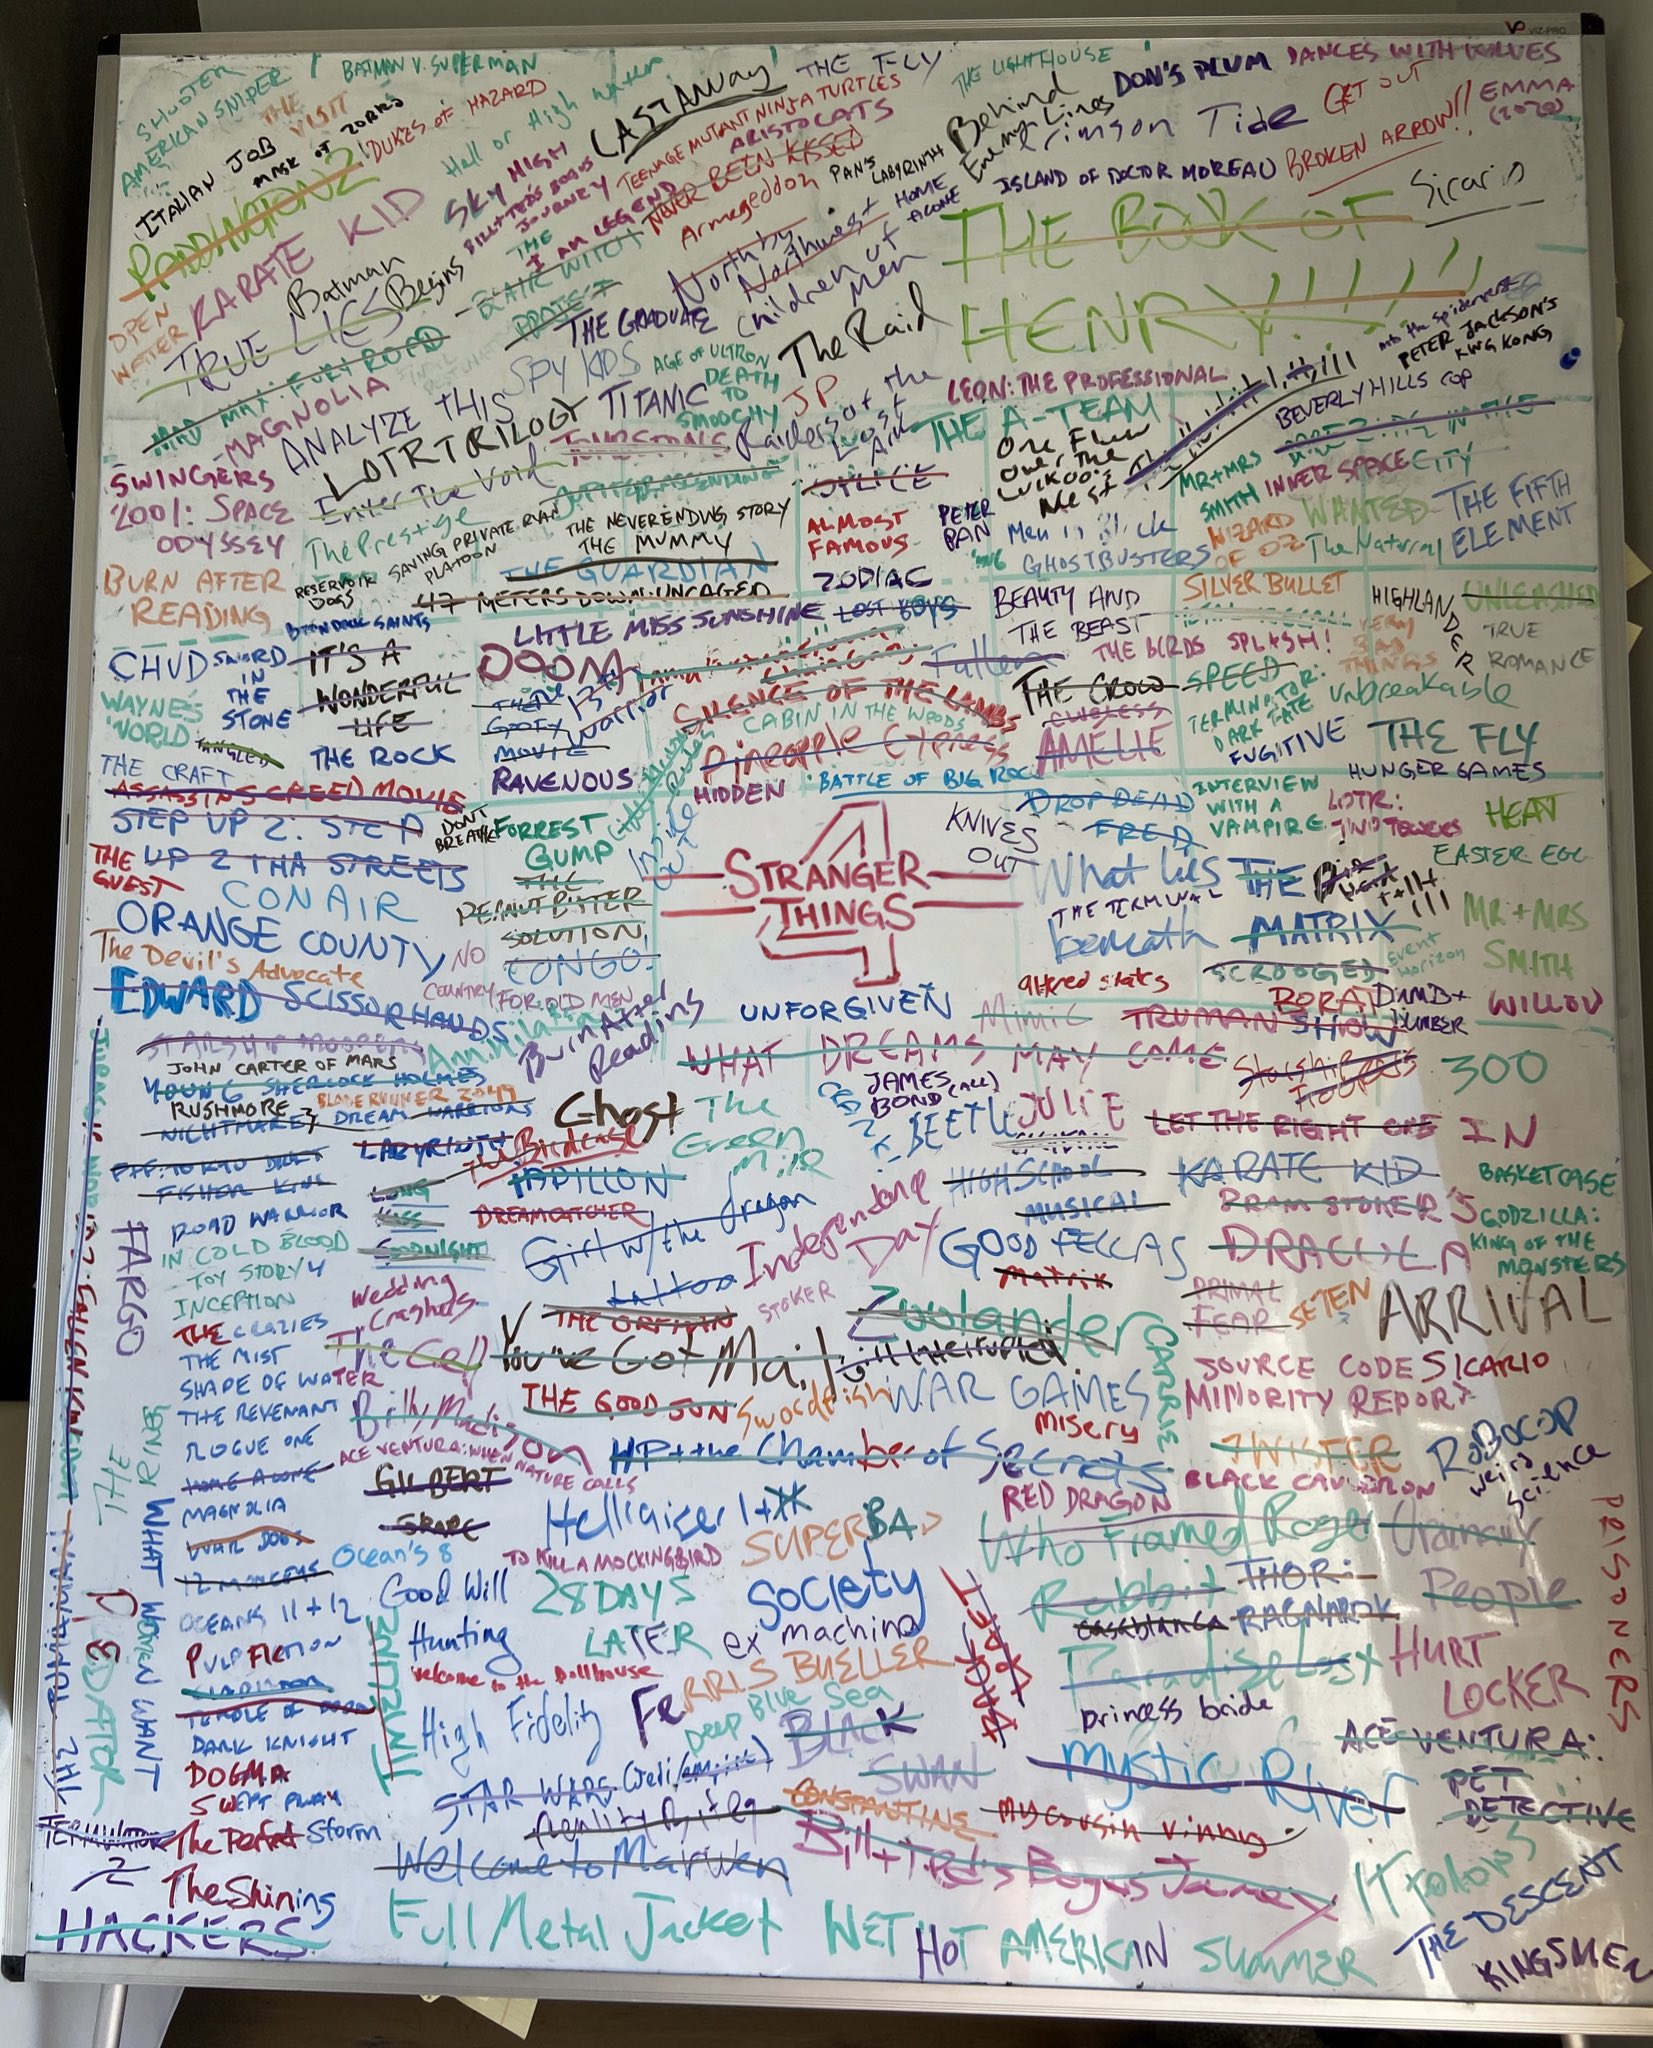 VIZ-PRO
SHOOTER
AMERICAN SNIPER
BATMAN V. SUPERMAN
THE VISIT
DUKES OF HAZARD
Hell or High Water
CASTAWAY
THE FLY
THE LIGHTHOUSE
DON'S PLUM
DANCES WITH WOLVES
ITALIAN JOB
MASK OF ZORRO
SKY HIGH
BILL+TED'S BOGUS JOURNEY
TEENAGE MUTANT NINJA TURTLES
ARISTOCATS
Behind Enemy Lines
Crimson Tide
GET OUT
EMMA (2020)
PADDINGTON 2
KARATE KID
I AM LEGEND
NEVER BEEN KISSED
Armageddon
PAN'S LABYRINTH
HOME ALONE
ISLAND OF DOCTOR MOREAU
BROKEN ARROW!!
Sicario
THE BOOK OF HENRY!!!!!
OPEN WATER
Batman Begins
THE BLAIR WITCH PROJECT
North by Northwest
Children of Men
TRUE LIES
THE GRADUATE
The Raid
MAD MAX: FURY ROAD
SPY KIDS
AGE OF ULTRON
DEATH TO SMOOCHY
PETER JACKSON'S KING KONG
MAGNOLIA
ANALYZE THIS
TITANIC
JP
Raiders of the Lost Ark
LEON: THE PROFESSIONAL
THE A-TEAM
BEVERLY HILLS COP
LOTR TRILOGY
SWINGERS
Enter The Void
JUPITER ASCENDING
SPLICE
One Flew Over the Cuckoo's Nest
MR+MRS SMITH
INNER SPACE
2001: SPACE ODYSSEY
The Prestige
SAVING PRIVATE RYAN
PLATOON
THE NEVERENDING STORY
THE MUMMY
ALMOST FAMOUS
PETER PAN
Men in Black
GHOSTBUSTERS
WIZARD OF OZ
WANTED
The Natural
THE FIFTH ELEMENT
BURN AFTER READING
RESERVOIR DOGS
THE GUARDIAN
ZODIAC
47 METERS DOWN: UNCAGED
BOONDOCK SAINTS
LITTLE MISS SUNSHINE
LOST BOYS
BEAUTY AND THE BEAST
SILVER BULLET
HIGHLANDER
UNLEASHED
VERY BAD THINGS
TRUE ROMANCE
CHUD
SWORD IN THE STONE
IT'S A WONDERFUL LIFE
DOOM
Fallen
THE BIRDS
SPLASH!
THE CROW
SPEED
Unbreakable
WAYNE'S WORLD
TANGLED
THE ROCK
THE GOOFY MOVIE
13th Warrior
SILENCE OF THE LAMBS
CABIN IN THE WOODS
CLUELESS
AMELIE
TERMINATOR: DARK FATE
FUGITIVE
THE FLY
THE CRAFT
RAVENOUS
Pineapple Express
HIDDEN
BATTLE OF BIG ROCK
HUNGER GAMES
ASSASSINS CREED MOVIE
STEP UP 2: STEP UP 2 THA STREETS
DON'T BREATHE
FORREST GUMP
Inside Out
KNIVES OUT
DROP DEAD FRED
INTERVIEW WITH A VAMPIRE
LOTR: TWO TOWERS
HEAT
EASTER EGG
THE GUEST
STRANGER THINGS
4
What Lies beneath
THE TERMINAL
THE MATRIX
CON AIR
THE PEANUT BUTTER SOLUTION
ORANGE COUNTY
CONGO!
MR + MRS SMITH
The Devil's Advocate
NO COUNTRY FOR OLD MEN
SCROOGED
Event Horizon
EDWARD SCISSORHANDS
Burn After Reading
UNFORGIVEN
altered states
Mimic
TRUMAN SHOW
BORAT
DUMB + DUMBER
WILLOW
STARSHIP TROOPERS
Annihilation
JOHN CARTER OF MARS
WHAT DREAMS MAY COME
Starship Troopers
300
YOUNG SHERLOCK HOLMES
BLADERUNNER 2049
RUSHMORE
NIGHTMARE 3 DREAM WARRIORS
Ghost
The Green Mile
JAMES BOND (ALL)
BEETLE
JULIE
LET THE RIGHT ONE IN
LABYRINTH
The Birdcage
F+F: TOKYO DRIFT
FISHER KING
PAPILLON
LONG KISS GOODNIGHT
DREAMCATCHER
HIGH SCHOOL MUSICAL
KARATE KID
BASKETCASE
ROAD WARRIOR
Girl w/ the dragon tattoo
Independence Day
GOODFELLAS
BRAM STOKER'S DRACULA
GODZILLA: KING OF THE MONSTERS
IN COLD BLOOD
TOY STORY 4
INCEPTION
Wedding Crashers
STOKER
matrix
PRIMAL FEAR
SE7EN
ARRIVAL
FARGO
THE CRAZIES
THE ORPHAN
Zoolander
THE MIST
The Cell
You've Got Mail
Girl Interrupted
CARRIE
SOURCE CODE
SICARIO
SHAPE OF WATER
THE REVENANT
Billy Madison
THE GOOD SON
Swordfish
WAR GAMES
MINORITY REPORT
Misery
ROGUE ONE
ACE VENTURA: WHEN NATURE CALLS
HP + the Chamber of Secrets
TWISTER
ROBOCOP
Weird Science
HOME ALONE
GILBERT GRAPE
BLACK CAULDRON
RED DRAGON
MAGNOLIA
Hellraiser
SUPERBAD
Who Framed Roger Rabbit
Ordinary People
PRISONERS
WAR DOGS
Ocean's 8
TO KILL A MOCKINGBIRD
12 MONKEYS
Good Will Hunting
28 DAYS LATER
SOCIETY
THOR: RAGNAROK
casablanca
OCEANS 11 + 12
ex machina
Paradise Lost
HURT LOCKER
PULP FICTION
Welcome to the Dollhouse
FERRIS BUELLER
GLADIATOR
TEMPLE OF DOOM
DARK KNIGHT
High Fidelity
Deep Blue Sea
princess bride
BLACK SWAN
Mystic River
ACE VENTURA: PET DETECTIVE
DOGMA
SWEPT AWAY
STAR WARS
CONSTANTINE
my cousin vinny
TERMINATOR 2
The Perfect Storm
Reality Bites
Welcome to Marwen
Bill + Ted's Bogus Journey
IT Follows
The Shining
HACKERS
Full Metal Jacket
WET HOT AMERICAN SUMMER
THE DESCENT
KINGSMEN
WHAT WOMEN WANT
PREDATOR
JUMANJI